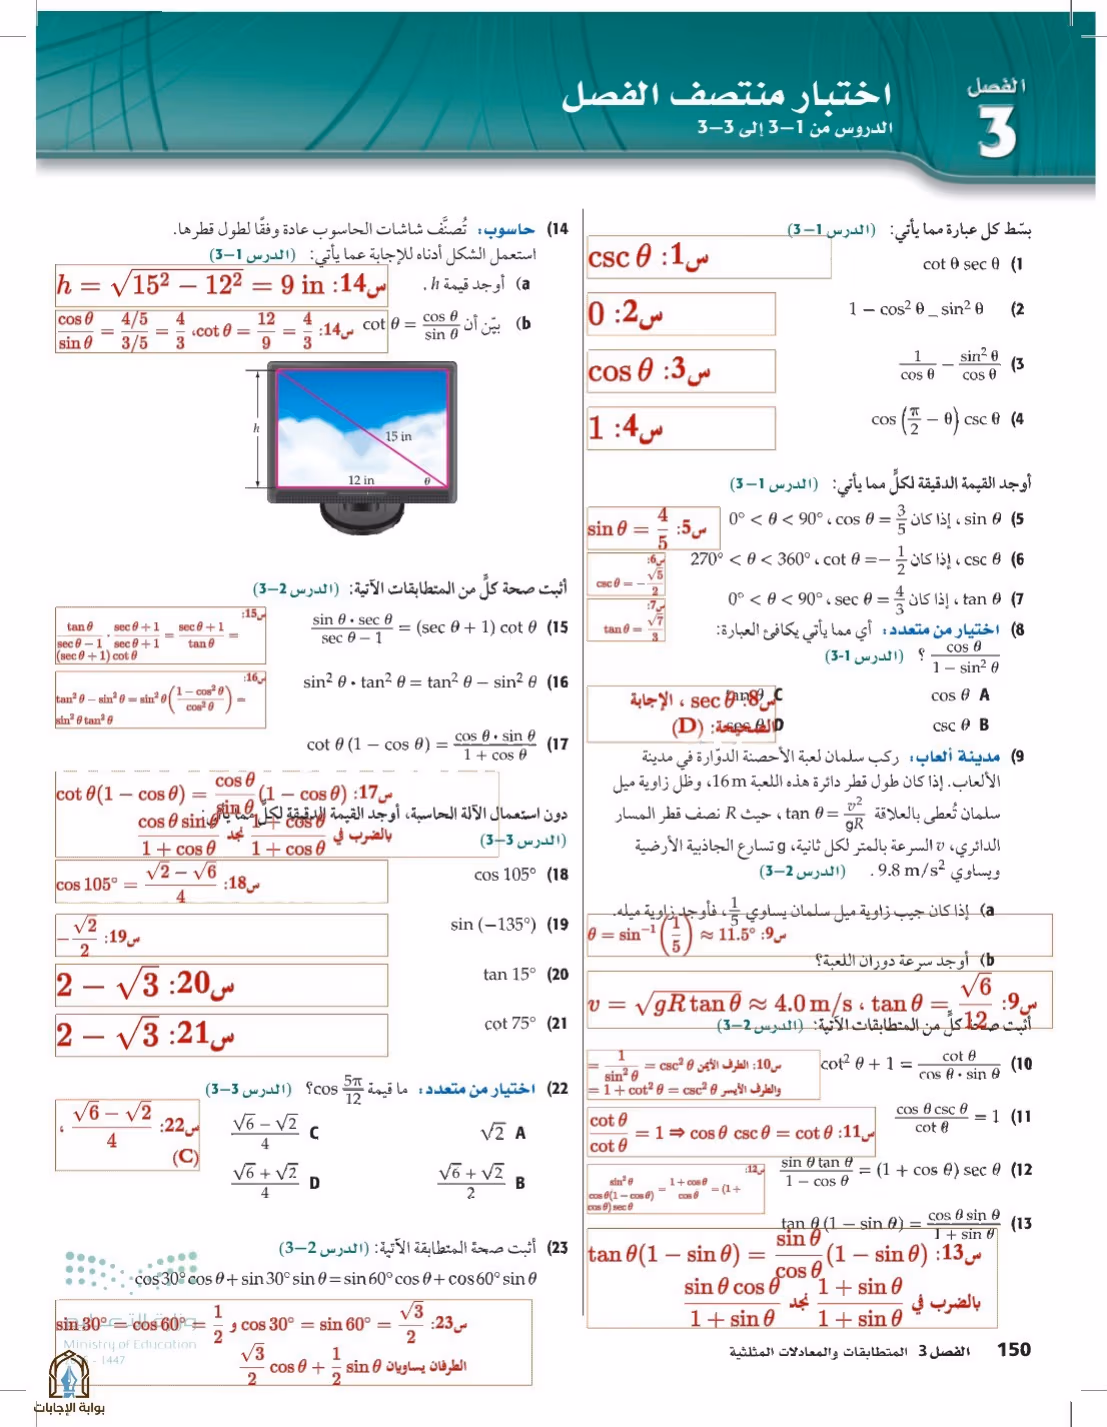 الفصل
3
اختبار منتصف الفصل
الدروس من 1-3 إلى 3-3
بسّط كل عبارة مما يأتي: (الدرس 1-3)
(1 cot θ sec θ
س1: csc θ
(2 1 − cos² θ − sin² θ
س2: 0
(3 1/cos θ − sin² θ/cos θ
س3: cos θ
(4 cos (π/2 − θ) csc θ
س4: 1
أوجد القيمة الدقيقة لكلٍّ مما يأتي: (الدرس 1-3)
(5 sin θ ، إذا كان cos θ = 3/5 ، 0° < θ < 90°
س5: sin θ = 4/5
(6 csc θ ، إذا كان cot θ = − 1/2 ، 270° < θ < 360°
س6: csc θ = − √5/2
(7 tan θ ، إذا كان sec θ = 4/3 ، 0° < θ < 90°
س7: tan θ = √7/3
(8 اختيار من متعدد: أي مما يأتي يكافئ العبارة:
cos θ/(1 − sin² θ) ؟ (الدرس 1-3)
cos θ A
tan θ C
csc θ B
sec θ D
س8: sec θ ، الإجابة
الصحيحة: (D)
(9 مدينة ألعاب: ركب سلمان لعبة الأحصنة الدوّارة في مدينة
الألعاب. إذا كان طول قطر دائرة هذه اللعبة 16 m، وظل زاوية ميل
سلمان تُعطى بالعلاقة tan θ = v²/gR ، حيث R نصف قطر المسار
الدائري، v السرعة بالمتر لكل ثانية، g تسارع الجاذبية الأرضية
ويساوي 9.8 m/s² . (الدرس 2-3)
(a إذا كان جيب زاوية ميل سلمان يساوي 1/5 ، فأوجد زاوية ميله.
س9: θ = sin⁻¹(1/5) ≈ 11.5°
(b أوجد سرعة دوران اللعبة؟
س9: tan θ = √6/12 ، v = √(gR tan θ) ≈ 4.0 m/s
أثبت صحة كلٍّ من المتطابقات الآتية: (الدرس 2-3)
(10 cot² θ + 1 = cot θ/(cos θ • sin θ)
س10: الطرف الأيمن = 1/sin² θ = csc² θ
والطرف الأيسر = 1 + cot² θ = csc² θ
(11 cos θ csc θ/cot θ = 1
س11: cos θ csc θ = cot θ ⇒ cot θ/cot θ = 1
(12 sin θ tan θ/(1 − cos θ) = (1 + cos θ) sec θ
س12:
sin² θ/(cos θ(1−cos θ)) = (1+cos θ)/cos θ = (1 +
cos θ) sec θ
(13 tan θ (1 − sin θ) = cos θ sin θ/(1 + sin θ)
س13: tan θ(1 − sin θ) = sin θ/cos θ (1 − sin θ)
بالضرب في (1 + sin θ)/(1 + sin θ) نجد sin θ cos θ/(1 + sin θ)
(14 حاسوب: تُصنَّف شاشات الحاسوب عادة وفقًا لطول قطرها.
استعمل الشكل أدناه للإجابة عما يأتي: (الدرس 1-3)
(a أوجد قيمة h .
س14: h = √(15² − 12²) = 9 in
(b بيّن أن cot θ = cos θ/sin θ
س14: cot θ = 12/9 = 4/3، cos θ/sin θ = (4/5)/(3/5) = 4/3
h
15 in
12 in
θ
أثبت صحة كلٍّ من المتطابقات الآتية: (الدرس 2-3)
(15 sin θ • sec θ/(sec θ − 1) = (sec θ + 1) cot θ
س15:
tan θ/(sec θ−1) · (sec θ+1)/(sec θ+1) = (sec θ+1)/tan θ =
(sec θ+1) cot θ
(16 sin² θ • tan² θ = tan² θ − sin² θ
س16:
tan² θ − sin² θ = sin² θ((1−cos² θ)/cos² θ) =
sin² θ tan² θ
(17 cot θ (1 − cos θ) = cos θ • sin θ/(1 + cos θ)
س17: cot θ(1 − cos θ) = cos θ/sin θ (1 − cos θ)
بالضرب في (1 + cos θ)/(1 + cos θ) نجد cos θ sin θ/(1 + cos θ)
دون استعمال الآلة الحاسبة، أوجد القيمة الدقيقة لكلٍّ مما يأتي:
(الدرس 3-3)
(18 cos 105°
س18: cos 105° = (√2 − √6)/4
(19 sin (−135°)
س19: − √2/2
(20 tan 15°
س20: 2 − √3
(21 cot 75°
س21: 2 − √3
(22 اختيار من متعدد: ما قيمة cos 5π/12؟ (الدرس 3-3)
√2 A
(√6 − √2)/4 C
(√6 + √2)/2 B
(√6 + √2)/4 D
س22: (√6 − √2)/4 ،
(C)
(23 أثبت صحة المتطابقة الآتية: (الدرس 2-3)
cos 30° cos θ + sin 30° sin θ = sin 60° cos θ + cos 60° sin θ
س23: cos 30° = sin 60° = √3/2 و sin 30° = cos 60° = 1/2
الطرفان يساويان √3/2 cos θ + 1/2 sin θ
Ministry of Education
1447
150 الفصل 3 المتطابقات والمعادلات المثلثية
بوابة الإجابات